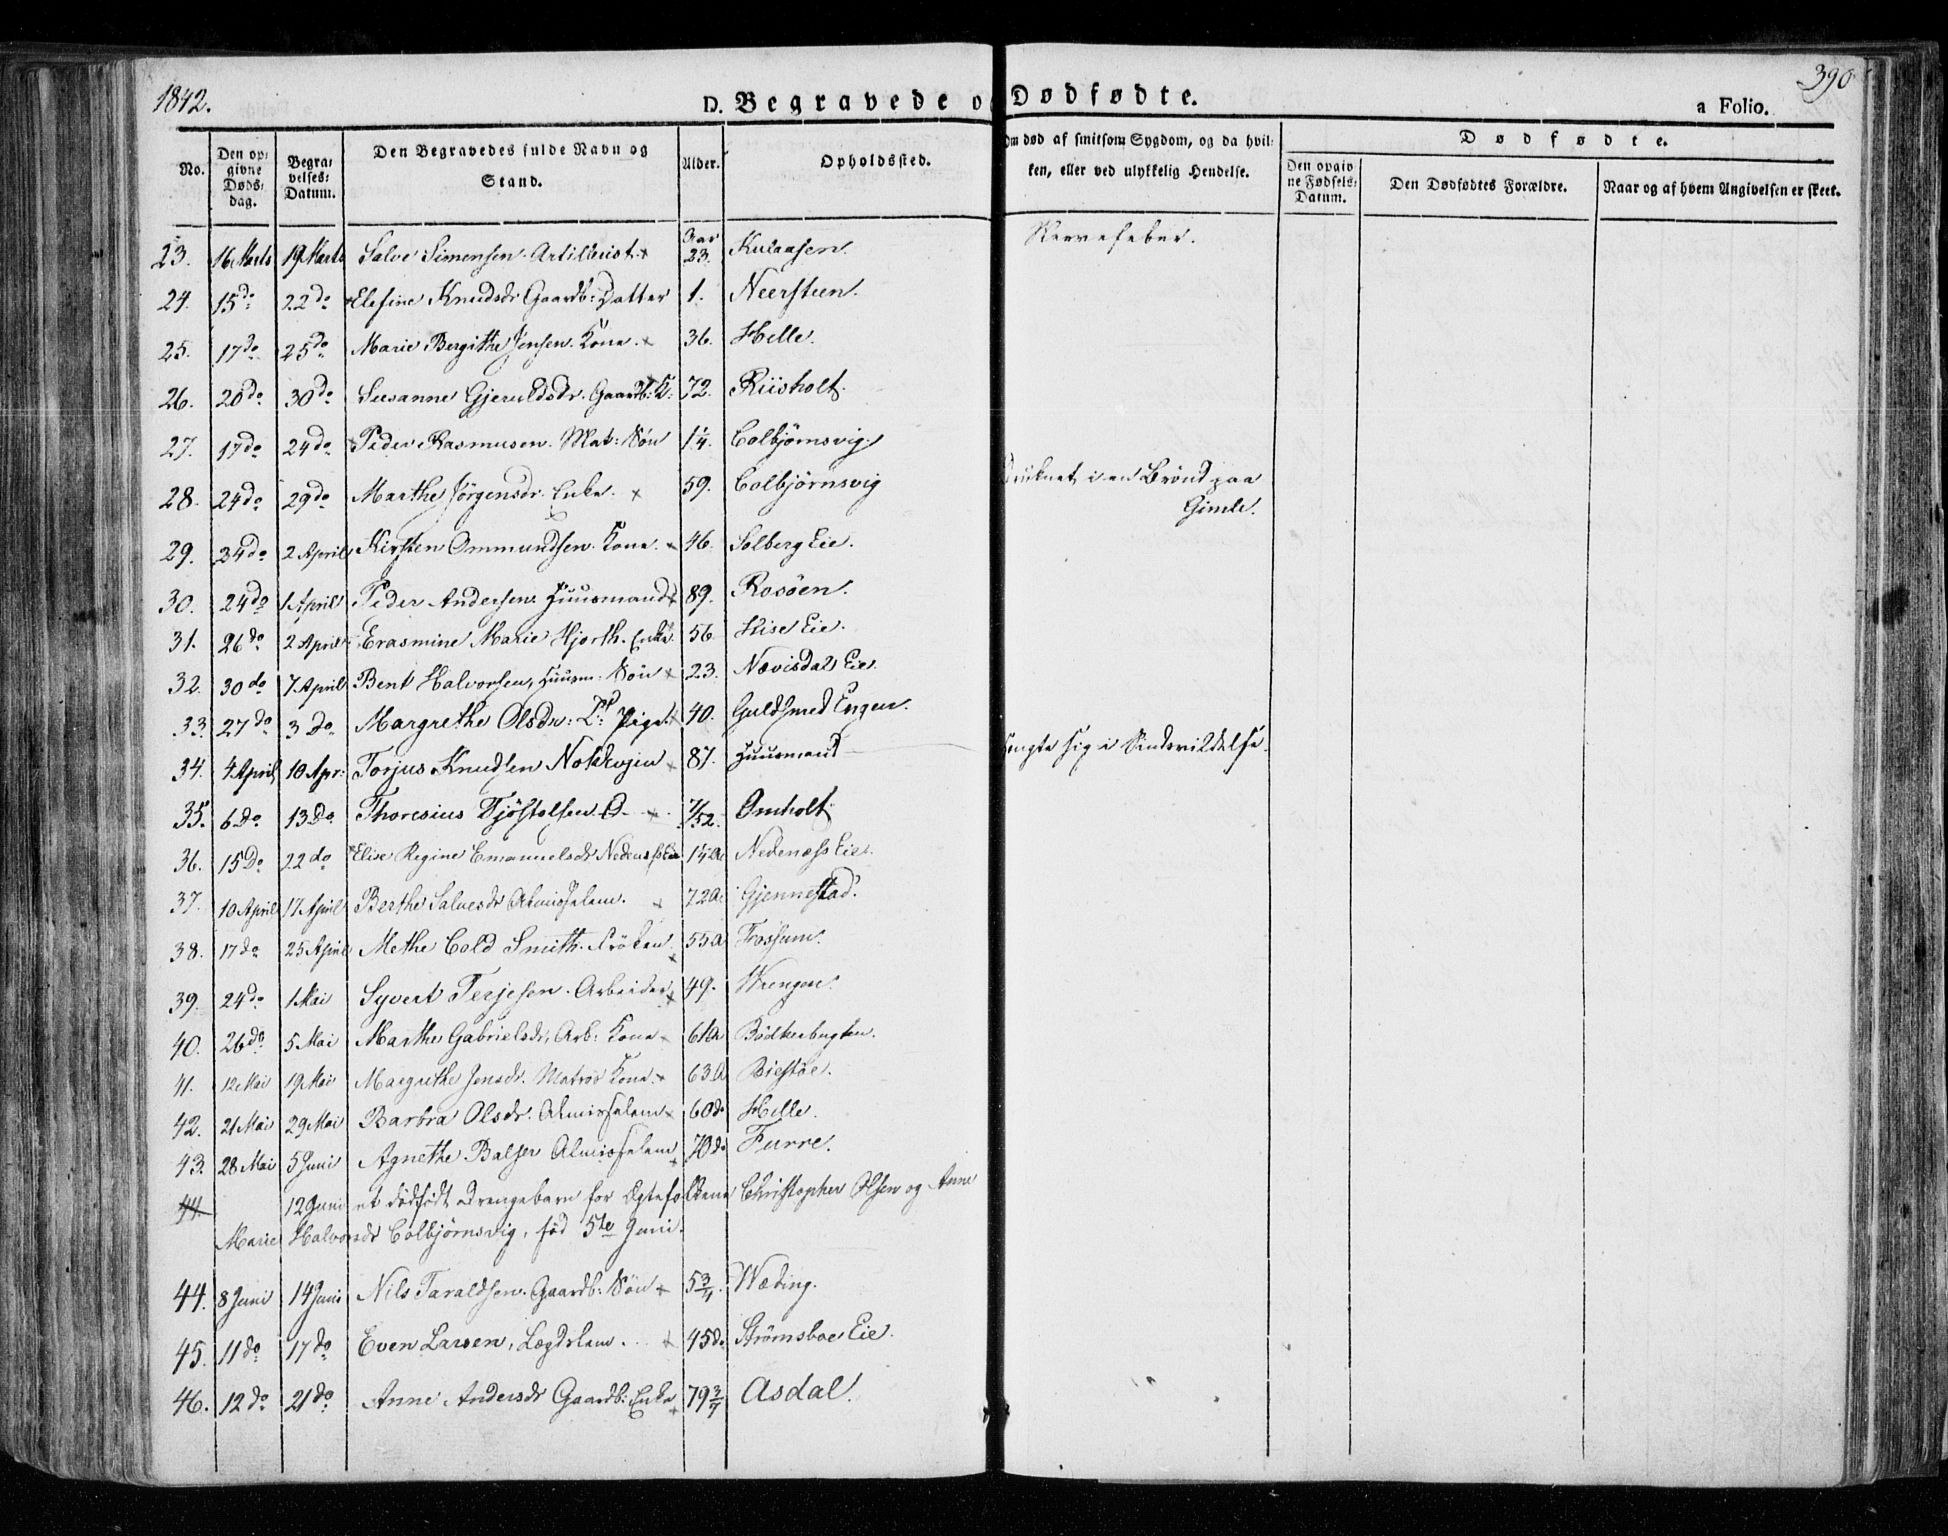 1842.
390
D. Begravede o Dødfødte.
a Folio.
No.
Den op: givne Døds: dag.
Begra: velses: Datum.
Den Begravedes fulde Navn og Stand.
Alder.
Opholdssted.
Om død af smitsom Sygdom, og da hvil: ken, eller ved ulykkelig Hendelse.
Dødfødte.
Den opgiv ne Fødsels: Datum.
Den Dødfødtes Forældre.
Naar og af hvem Angivelsen er skeet.
23. 16 Marts 19 Marts Salve Simensen. Artillerist Aar 23. Kulaasen. Nervefeber.
24. 15 do 22 do Elefine Knudsdr Gaardb: Datter 1. Neersteen.
25. 17 do 25 do Marie Bergithe Jensen. Kone. 36. Helle.
26. 20 do 30 do Susanne Gjeruldsdr. Gaardb: K: 72. Riisholt.
27. 17 do 24 do Peder Rasmusen. Mat: Søn 1¼. Colbjørnsvig.
28. 24 do 29 do Marthe Jørgensdr. Enke. 59. Colbjørnsvig Druknet i en Brønd paa
Gimle.
29. 24 do 2 April Kirsten Ommundsen. Kone. 46. Solberg Eie.
30. 24 do 1 April Peder Andersen Huusmand 89. Rosøen.
31. 26 do 2 April Erasmine Marie Hjorth. Enke 56. Hise Eie.
32. 30 do 7 April Bent Halvorsen, Huusm: Søn 23. Nævisdal Eie
33. 27 do 3 Do Margrethe Olsdr: Pige 40. Guldsmed Engen.
34. 4 April 10 Apr: Torjus Knudsen 87. Huusmand hengte sig i Sindsvildelse.
35. 6 Do 13 Do Thoresius Tjøstolsen 7/52. Omholt
36. 15 Do 22 do Elise Regine Emanuelsdr 1½ Nedenæss Eie.
37. 10 April 17 April Berthe Salvesdr Almisselem. 72 A. Gjennestad.
38. 17 do 25 April Methe Cold Smith. Frøken 55 A Frossum.
39. 24 do 1 Mai Syvert Terjesen. Arbeider 49. Wrengen.
40. 26 do 5 Mai Marthe Gabrielsdr, Arb: Kone 61 A Bødkerbugten.
41. 12 Mai 19 Mai Margrethe Jensdr. Matros Kone. 63 A Biestøe.
42. 21 Mai 29 Mai Barbra Olsdr. Almisselem 60 do Helle.
43. 28 Mai 5 Juni Agnethe Balser Almisselem 70 do Furre.
44 12 Juni et dødfødt Drengebarn for Ægtefolkene Christopher Olsen og Anne
Marie Halvorsdr Colbjørnsvig, fød 5te Juni.
44. 8 Juni 14 Juni Nils Taraldsen. Gaardb: Søn 5¾. Wæding.
45. 11 do 17 do Even Larsen, Lægdslem. 45 do Strømsboe Eie.
46. 12 do 21 do Anne Andersdr Gaardb: Enke 79¾ Asdal.